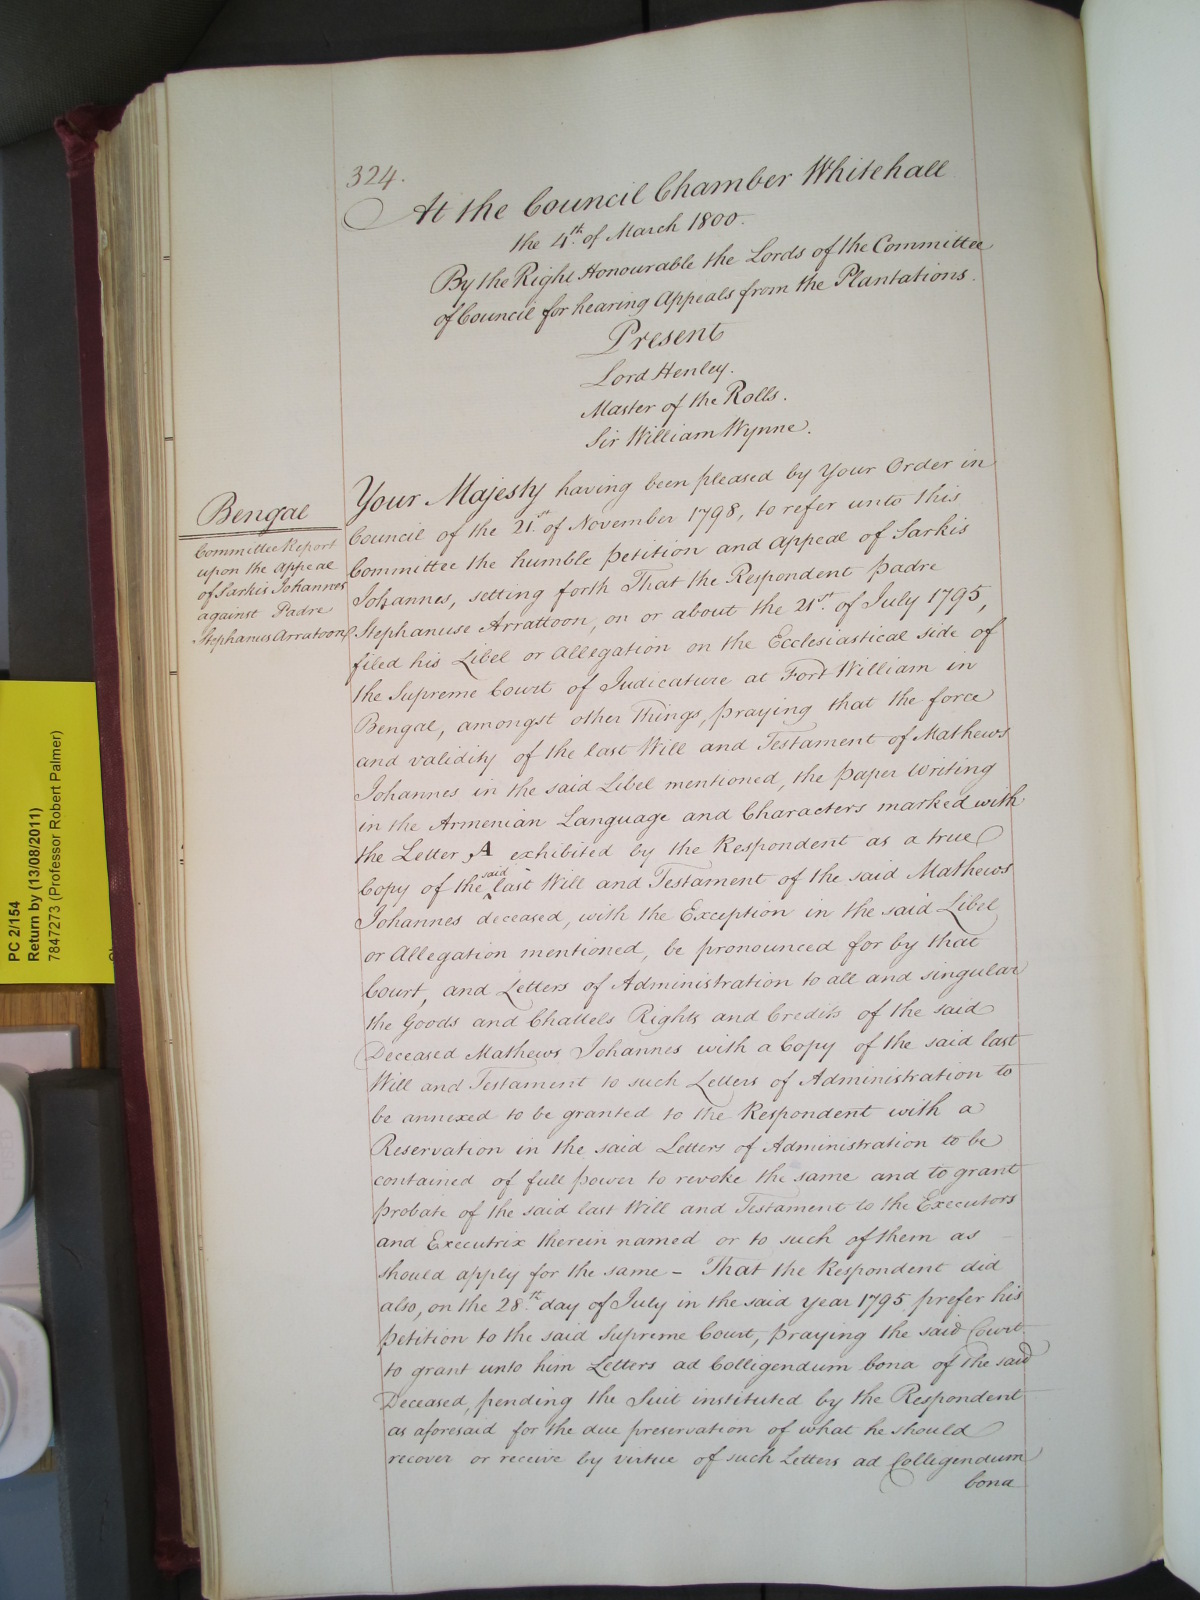 324.
At the Council Chamber Whitehall
the 4th. of March 1800.
By the Right Honourable the Lords of the Committee
of Council for hearing Appeals from the Plantations.
Present
Lord Henley.
Master of the Rolls.
Sir William Wynne.
Bengal
Committee Report
upon the appeal
of Sarkis Johannes
against Padre
Stephanus Arratoon
Your Majesty having been pleased by Your Order in
Council of the 21st. of November 1798, to refer unto this
Committee the humble Petition and Appeal of Sarkis
Johannes, setting forth That the Respondent Padre
Stephanuse Arrattoon, on or about the 21st. of July 1795,
filed his Libel or Allegation on the Ecclesiastical side of
the Supreme Court of Judicature at Fort William in
Bengal, amongst other Things, praying that the force
and validity of the last Will and Testament of Mathews
Johannes in the said Libel mentioned, the paper Writing
in the Armenian Language and Characters marked with
the Letter A exhibited by the Respondent as a true
Copy of the said last Will and Testament of the said Mathews
Johannes deceased, with the Exception in the said Libel
or Allegation mentioned, be pronounced for by that
Court, and Letters of Administration to all and singular
the Goods and Chattels Rights and Credits of the said
Deceased Mathews Johannes with a Copy of the said last
Will and Testament to such Letters of Administration to
be annexed to be granted to the Respondent with a
Reservation in the said Letters of Administration to be
contained of full power to revoke the same and to grant
probate of the said last Will and Testament to the Executors
and Executrix therein named or to such of them as
should apply for the same – That the Respondent did
also, on the 28th. day of July in the said Year 1795 prefer his
Petition to the said Supreme Court, praying the said Court
to grant unto him Letters ad Colligendum bona of the said
Deceased, pending the Suit instituted by the Respondent
as aforesaid for the due preservation of what he should
recover or receive by virtue of such Letters ad Colligendum
bona
PC 2/154
Return by (13/08/2011)
7847273 (Professor Robert Palmer)